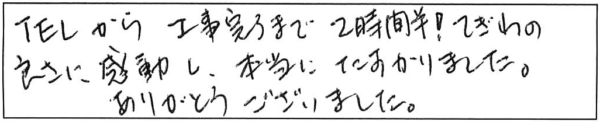 TELから 工事完了まで 2時間半!てぎわの
良さに 感動し、本当に たすかりました。
ありがとう ございました。